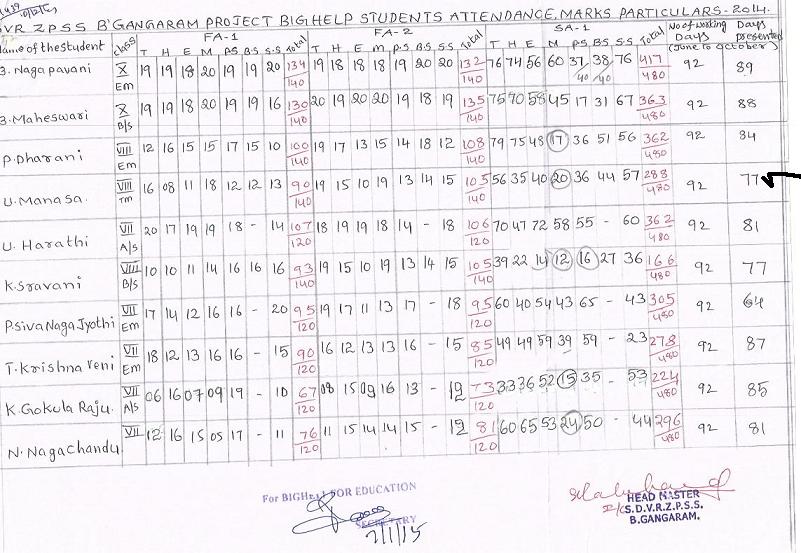 DVR ZPSS B'GANGARAM PROJECT BIGHELP STUDENTS ATTENDANCE, MARKS PARTICULARS - 2014.
Name of the student class FA-1 FA-2 SA-1 No of working Days (June to October) Days presented
T H E M PS BS SS Total T H E M P.S BS SS Total T H E M PS BS SS Total
B. Naga pavani X Em 19 19 18 20 19 19 20 134/140 19 18 18 18 19 20 20 132/140 76 74 56 60 37/40 38/40 76 417/480 92 89
B. Maheswari X B/s 19 19 18 20 19 19 16 130/140 20 19 20 20 19 18 19 135/140 75 70 58 45 17 31 67 363/480 92 88
P. Dharani VIII Em 12 16 15 15 17 15 10 100/140 19 17 13 15 14 18 12 108/140 79 75 48 17 36 51 56 362/480 92 84
U. Manasa VIII Tm 16 08 11 18 12 12 13 90/140 19 15 10 19 13 14 15 105/140 56 35 40 20 36 44 57 288/480 92 77
U. Harathi VII A/s 20 17 19 19 18 - 14 107/120 18 19 19 18 14 - 18 106/120 70 47 72 58 55 - 60 362/480 92 81
K. Sravani VIII B/s 10 10 11 14 16 16 16 93/140 19 15 10 19 13 14 15 105/140 39 22 14 12 16 27 36 166/480 92 77
P. Siva Naga Jyothi VII Em 17 14 12 16 16 - 20 95/120 19 17 11 13 17 - 18 95/120 60 40 54 43 65 - 43 305/480 92 64
T. Krishna Veni VII Em 18 12 13 16 16 - 15 90/120 16 12 13 13 16 - 15 85/120 49 49 59 39 59 - 23 278/480 92 87
K. Gokula Raju VII A/s 06 16 07 09 19 - 10 67/120 08 15 09 16 13 - 12 73/120 33 36 52 15 35 - 53 224/480 92 85
N. NagaChandu VII 12 16 15 05 17 - 11 76/120 11 15 14 14 15 - 12 81/120 60 65 53 24 50 - 44 296/480 92 81
For BIGHELP FOR EDUCATION
SECRETARY
2/1/15
HEAD MASTER
I/c S.D.V.R.Z.P.S.S.
B.GANGARAM.